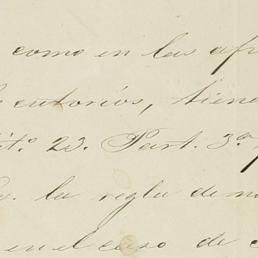 como en las afr
cutorios, tiene
it.o 23. Part. 3a,
la regla de n
en el caso de c